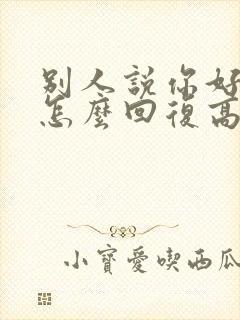 别人説你好
怎麼回復高
小寶愛喫西瓜